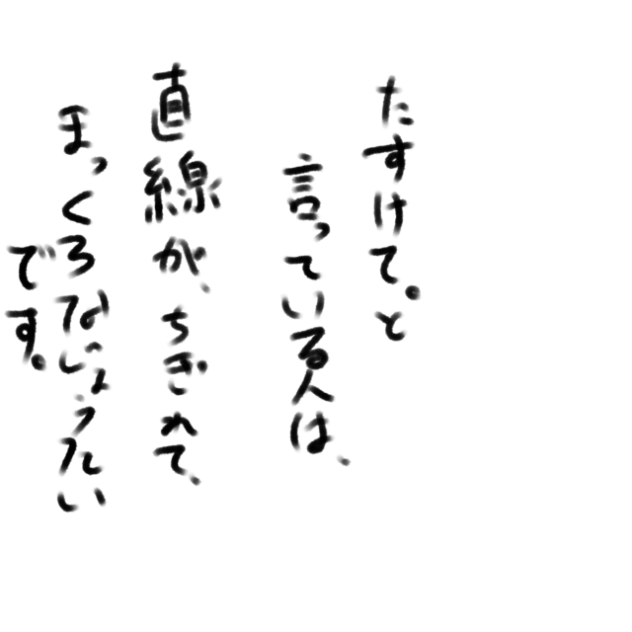 たすけて。と
言っている人は、
直線が、ちぎれて、
まっくろなじょうたい
です。